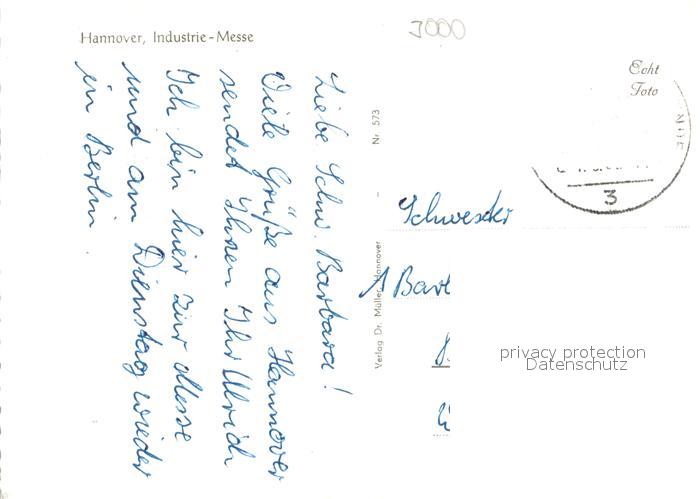 Hannover, Industrie-Messe
3000
Echt
Foto
Liebe Schw. Barbara!
Viele Grüße aus Hannover
sendet Ihnen Ihr Ulrich
Ich bin hier zur Messe
und am Dienstag wieder
in Berlin
Nr. 573
Verlag Dr. Müller, Hannover
3
Schwester
privacy protection
Datenschutz